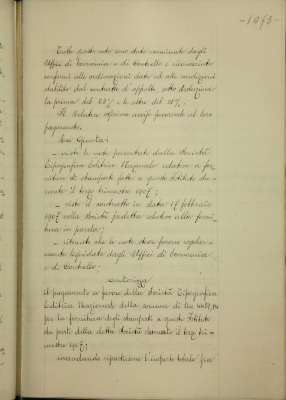 -1073-
Tutte queste note sono state esaminate dagli
Uffici di Economia e di Controllo e riconosciute
conformi alle ordinazioni date ed alle condizioni
stabilite dal contratto d'appalto, sotto deduzione
la prima del 28% e le altre del 11%.
Il Relatore esprime avviso favorevole al loro
pagamento.
La Giunta:
- viste le note presentate dalla Società
Tipografico Editrice Nazionale relative a for-
niture di stampati fatte a questo Istituto du-
rante il terzo trimestre 1907;
- visto il contratto in data 17 febbraio
1907 colla Società predetta relativo alla forni-
tura in parola;
- ritenuto che le note stesse furono regolar-
mente liquidate dagli Uffici di Economia
e di Controllo;
autorizza
il pagamento a favore della Società Tipografico
Editrice Nazionale della somma di Lire
per la fornitura degli stampati a questo Istituto
da parte della detta Società durante il terzo tri-
mestre 1907;
mandando ripartirsene l'importo totale fra